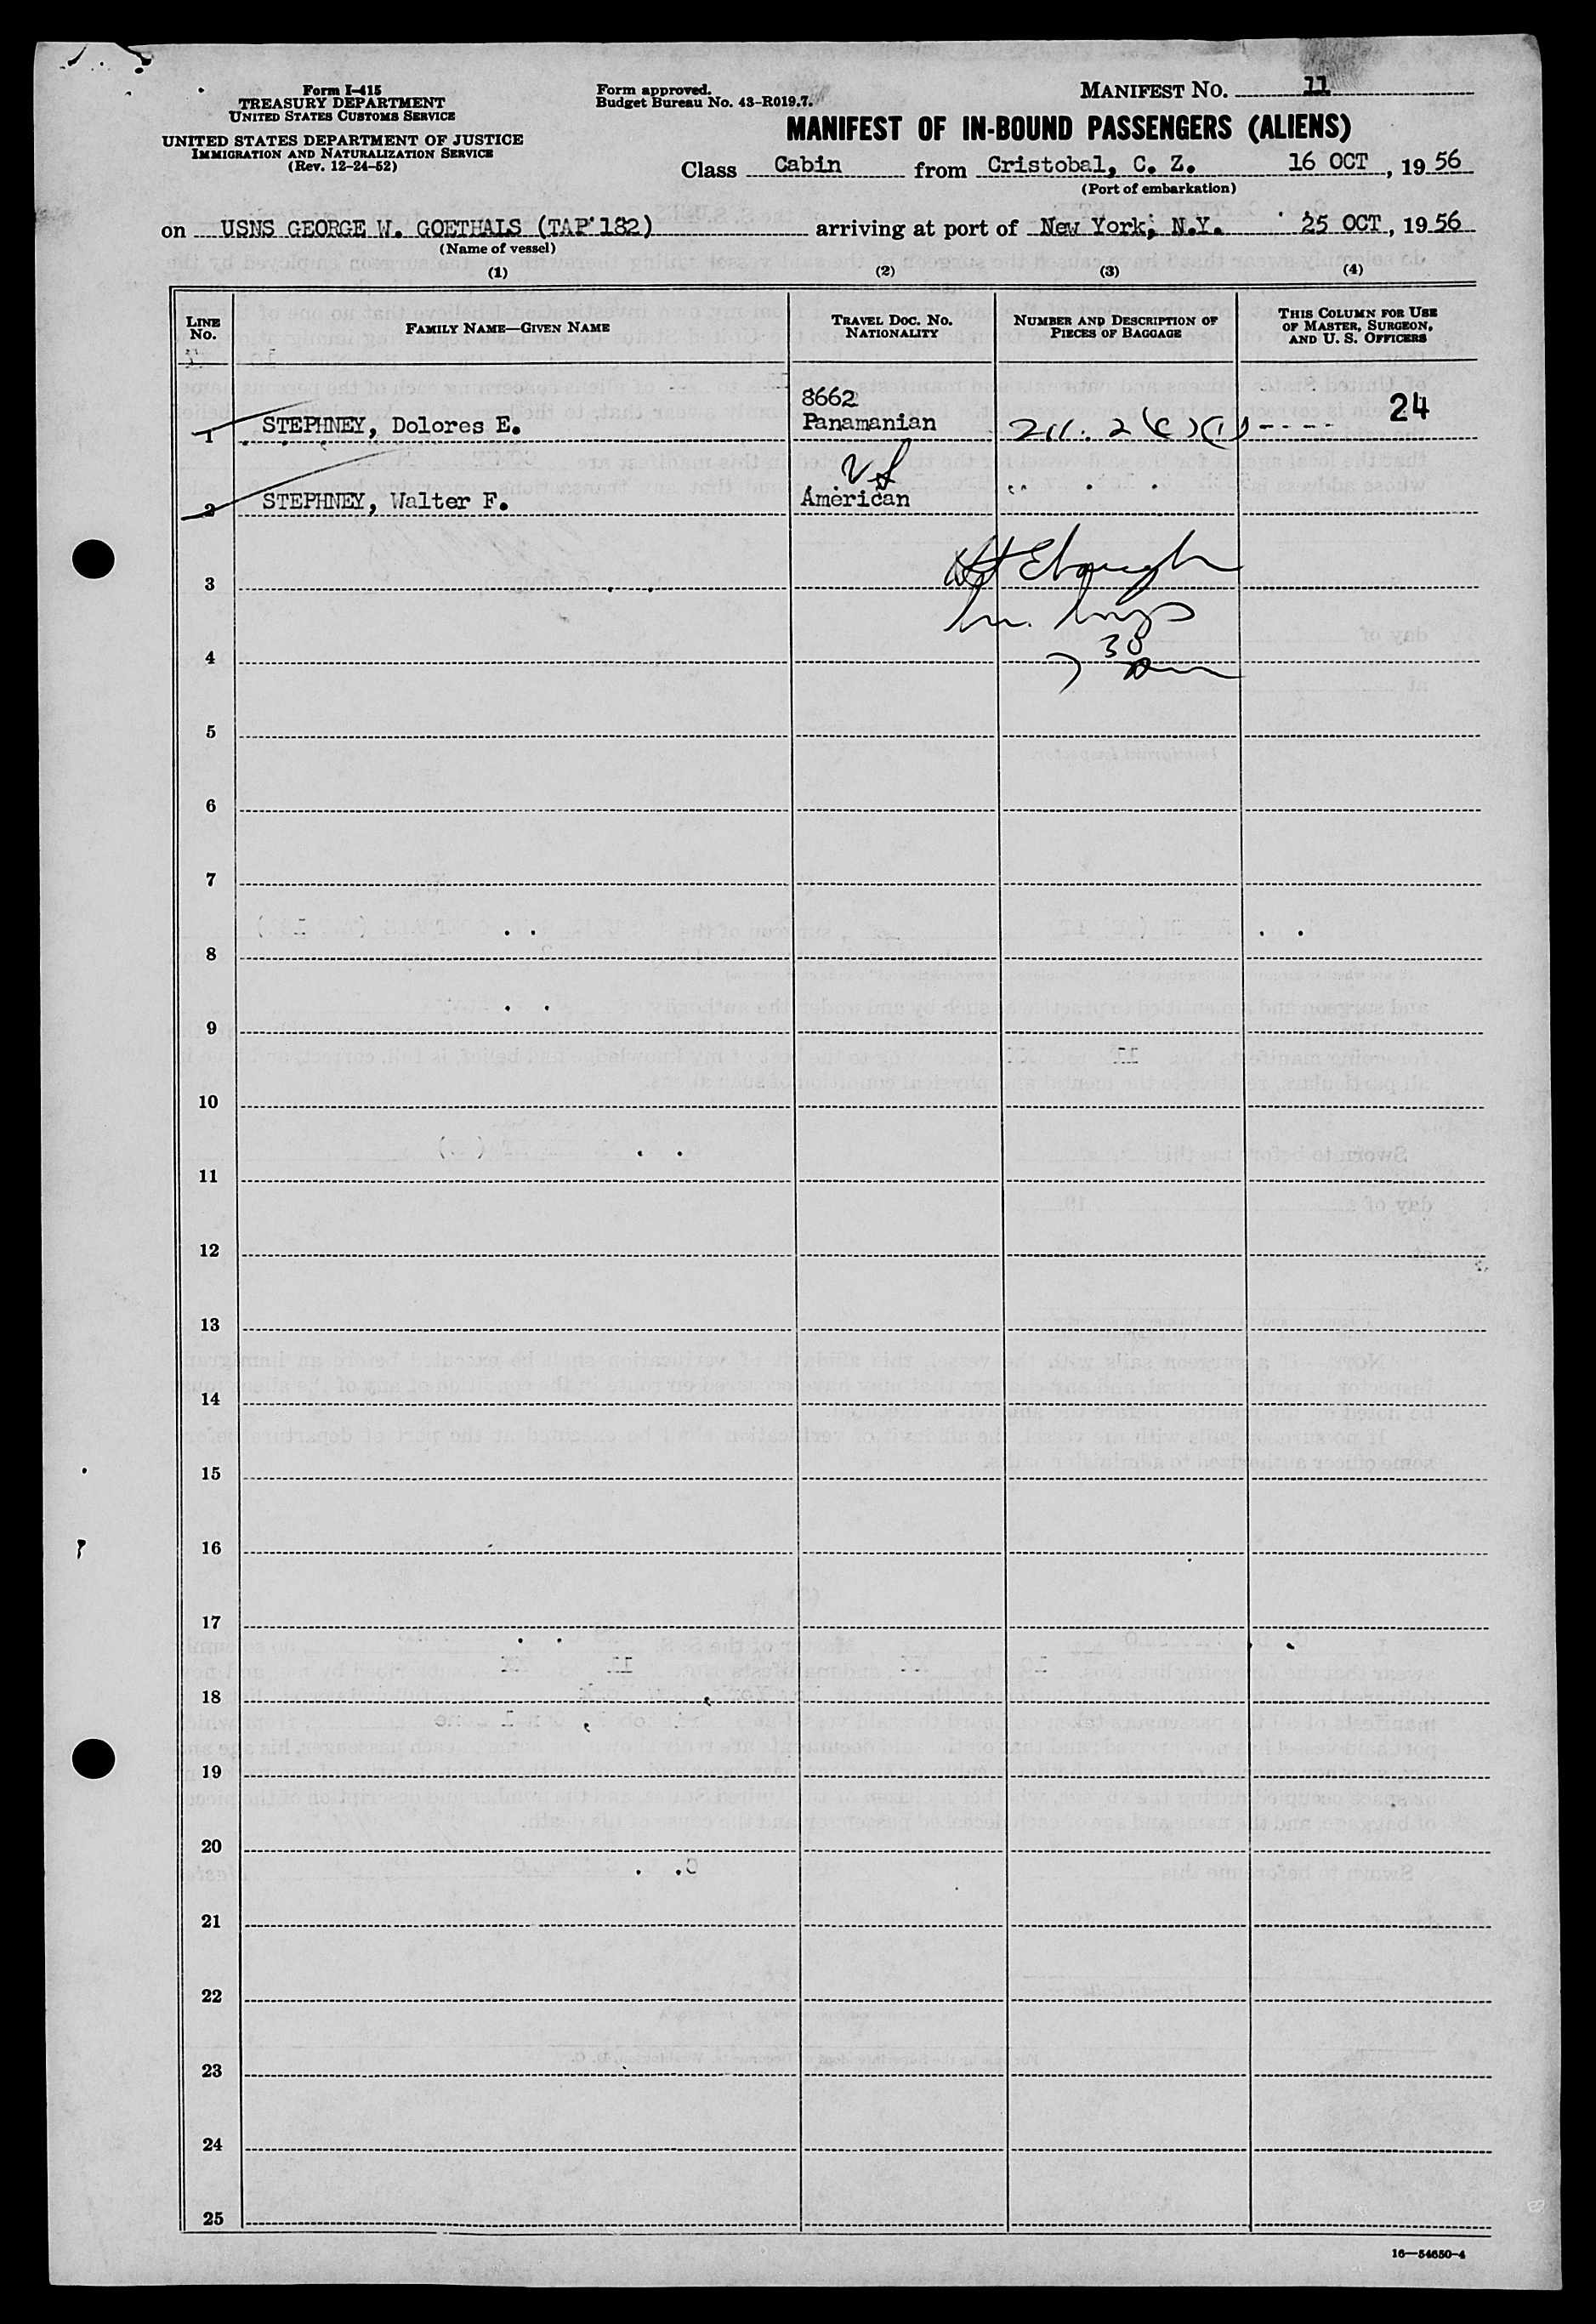 Form I-415
TREASURY DEPARTMENT
UNITED STATES CUSTOMS SERVICE
UNITED STATES DEPARTMENT OF JUSTICE
IMMIGRATION AND NATURALIZATION SERVICE
(Rev. 12-24-52)
Form approved.
Budget Bureau No. 43-R019.7.
MANIFEST NO. 11
MANIFEST OF IN-BOUND PASSENGERS (ALIENS)
Class Cabin from Cristobal, C. Z. 16 OCT, 1956
(Port of embarkation)
on USNS GEORGE W. GOETHALS (TAP 182) arriving at port of New York, N.Y. 25 OCT, 1956
(Name of vessel)
(1) (2) (3) (4)
LINE NO. FAMILY NAME—GIVEN NAME TRAVEL DOC. NO. NATIONALITY NUMBER AND DESCRIPTION OF PIECES OF BAGGAGE THIS COLUMN FOR USE OF MASTER, SURGEON, AND U. S. OFFICERS
8662
1 STEPHNEY, Dolores E. Panamanian 211. 2 ( ) (1) - - - - 24
2 STEPHNEY, Walter F. American
3
30
4 7
5
6
7
8
9
10
11
12
13
14
15
16
17
18
19
20
21
22
23
24
25
16—54650-4